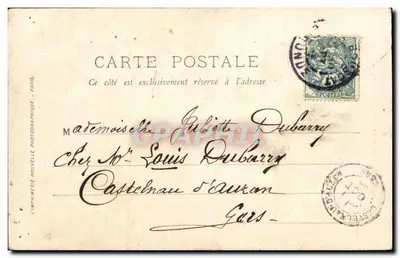 CARTE POSTALE
Ce côté est exclusivement réservé à l'adresse
Mademoiselle Juliette Dubarry
Chez Mr Louis Dubarry
Castelnau d'auzan
Gers
L'IMPRIMERIE NOUVELLE PHOTOGRAPHIQUE - PARIS